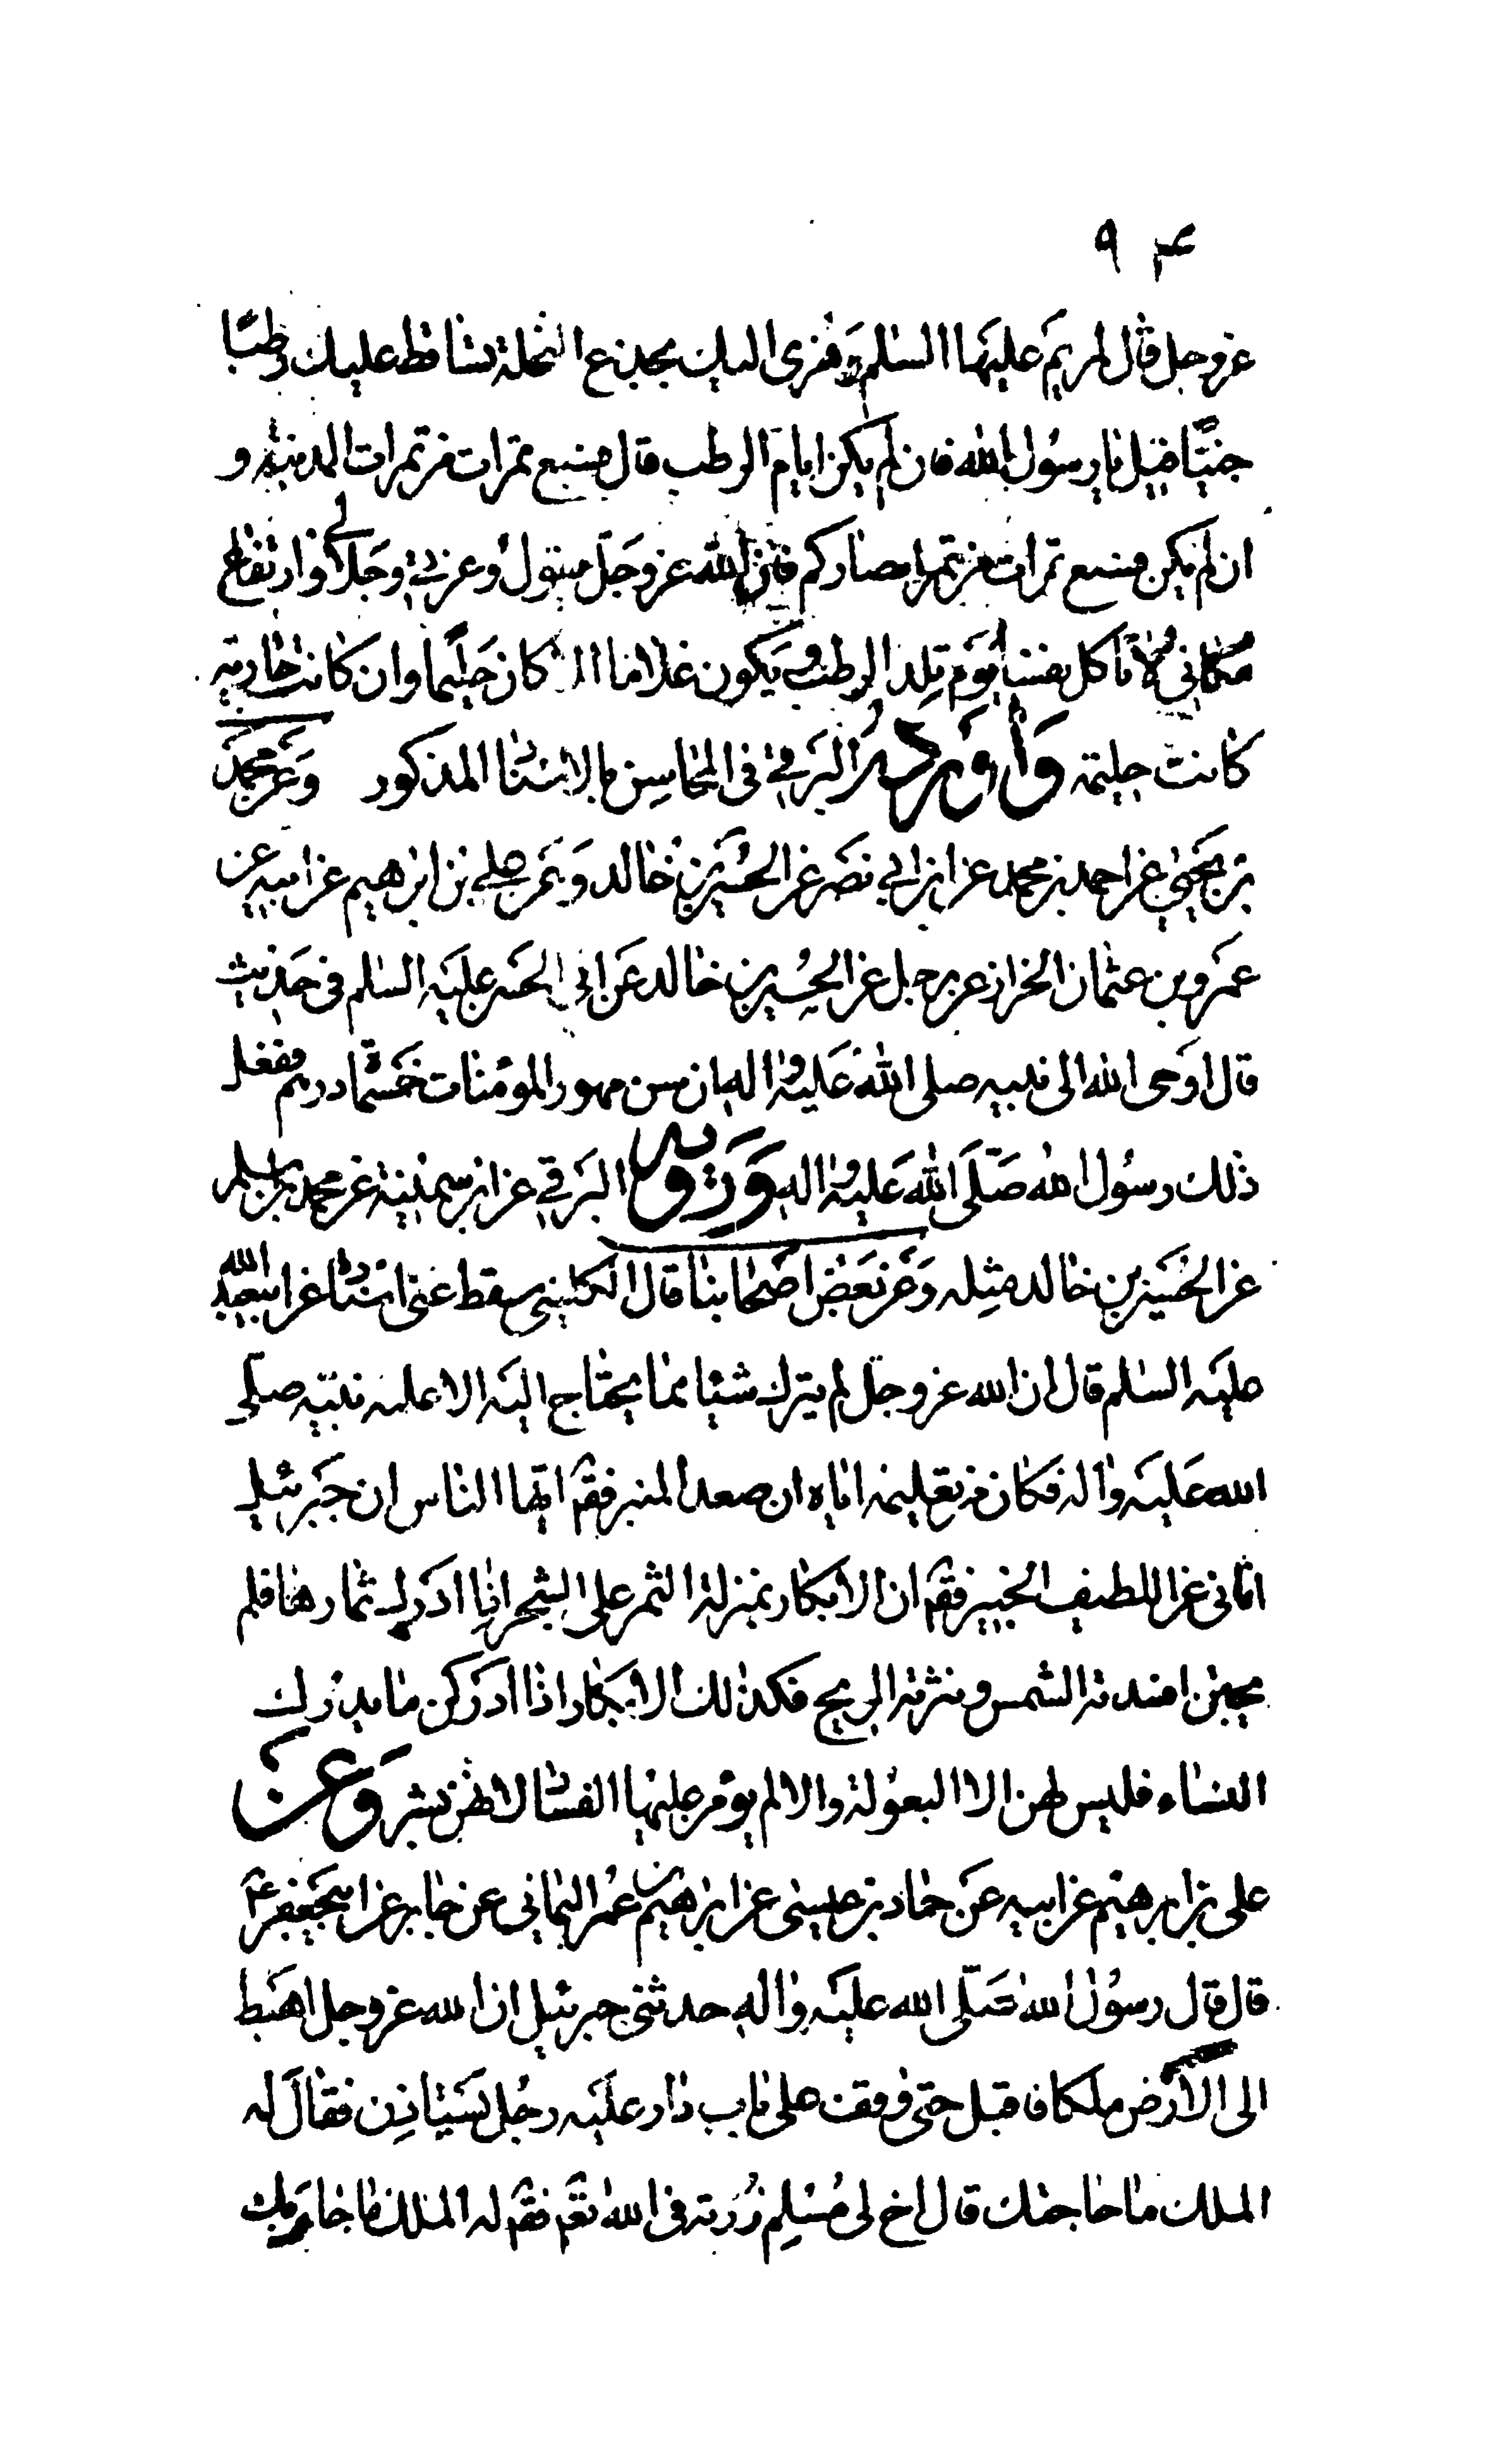 ٩ ۴
عز وجل قال لمريم عليها السلم وهزى اليك بجذع النخلة تساقط عليك رطبا
جنيا قيل يا رسول الله فان لم يكن ايام الرطب قال فسبع تمرات من تمرات المدينة و
ان لم يكن فسبع تمرات من تمر امصاركم فان الله عز وجل يقول وعزتي وجلالي وارتفاع
مكاني لا تاكل نفسا يوم تلد الرطب فيكون غلاما الا كان حليما وان كانت جارية
كانت حليمة واورده البرقي في المحاسن بالاسناد المذكور وعن محمد
بن يحيى عن احمد بن محمد عن ابن ابي نصر عن الحسين بن خالد وعن علي بن ابرهيم عن ابيه عن
عمرو بن عثمان الخزاز عن رجل عن الحسين بن خالد عن ابي الحسن عليه السلم في حديث
قال اوحى الله الى نبيه صلى الله عليه واله ان سن مهور المؤمنات خمسمائة درهم ففعل
ذلك رسول الله صلى الله عليه واله ورواه البرقي عن محمد بن اسلم
عن الحسين بن خالد مثله وعن بعض اصحابنا قال الكليني سقط عني اسناده عن ابيعبد الله
عليه السلم قال ان الله عز وجل لم يترك شيئا مما يحتاج اليه الا علمه نبيه صلى
الله عليه واله فكان من تعليمه اياه ان صعد المنبر فقم ايها الناس ان جبرئيل
اتاني عن اللطيف الخبير فقم ان الابكار بمنزلة الثمر على الشجر اذا ادرك ثمارها فلم
يجتن افسدته الشمس ونثرته الريح فكذلك الابكار اذا ادركن ما يدرك
النساء فليس لهن الا البعولة والا لم يؤمن عليها الفساد لانهن بشر وعن
علي بن ابرهيم عن ابيه عن حماد بن عيسى عن ابرهيم بن عمر اليماني عن جابر عن ابيجعفر ع
قال قال رسول الله صلى الله عليه واله حدثني جبرئيل ان الله عز وجل اهبط
الى الارض ملكا فاقبل حتى وقف على باب دار عليه رجل يستاذن فقال له
الملك ما حاجتك قال اخ لي مسلم زرته في الله تعم فقم له الملك ما جاء بك